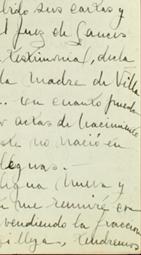 bido sus cartas y
Juez de Gances
testimonial, decla
la Madre de Villa
.. en cuanto pueda
actas de Nacimiento
este no nació en
leguas.-
Nueva y
me reuniré con
vendiendo la fraccion
illegas, tendremos